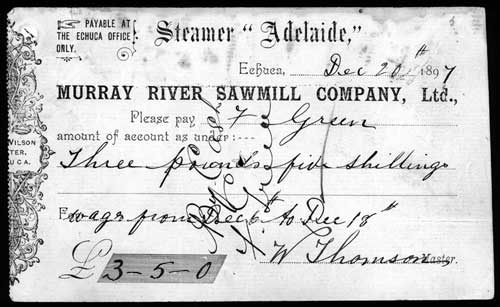 PAYABLE AT
THE ECHUCA OFFICE
ONLY.
Steamer "Adelaide,"
Echuca, Dec 20th 1897
MURRAY RIVER SAWMILL COMPANY, Ltd.,
Please pay F Green
amount of account as under:---
Three pounds five shillings
wages from Dec 6th to Dec 18th
£ 3-5-0
W Thomson
Master.
By Cash
WILSON
TER.
UCA.